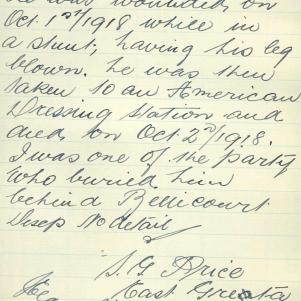 He was wounded on
Oct. 1st/1918 while in
a stunt; having his leg
blown. He was then
taken to an American
Dressing Station and
died on Oct 2nd/1918.
I was one of the party
who buried him
behind Bellicourt
No detail
S. G. Price
East Greta